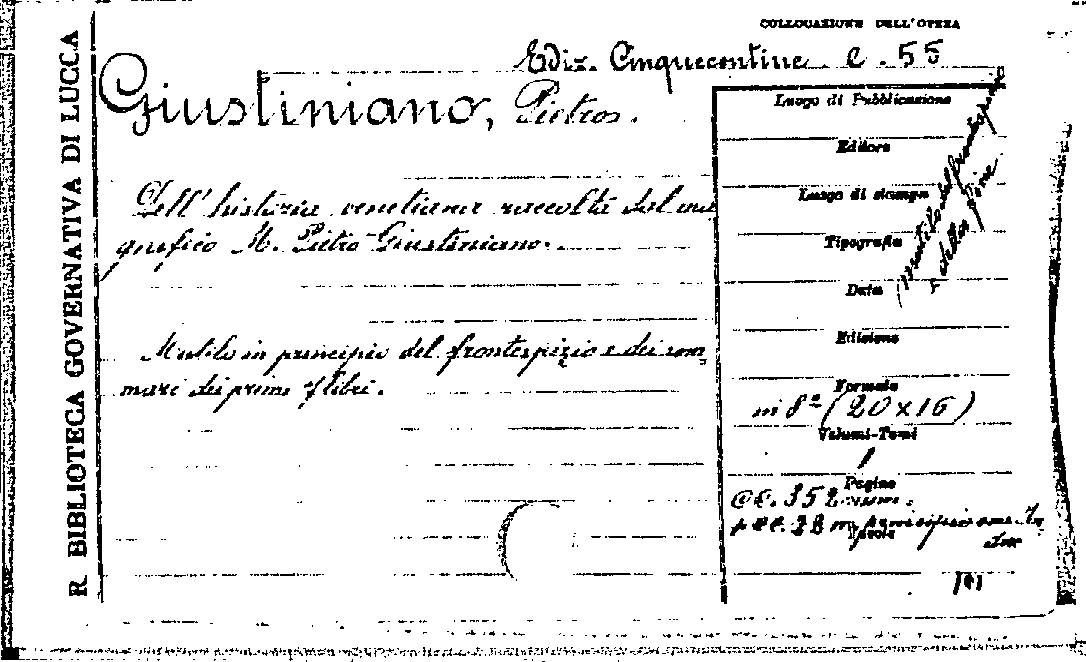 R BIBLIOTECA GOVERNATIVA DI LUCCA
COLLOCAZIONE DELL'OPERA
Ediz. Cinquecentine C. 55
Giustiniano, Pietro.
Dell'historia venetiana raccolta dal ma
gnifico M. Pietro Giustiniano.
Mutilo in principio del frontespizio e dei som
mari dei primi 7 libri.
Luogo di Pubblicazione
Editore
Luogo di stampa
Tipografia
Data
(mutilo del frontespizio
e della fine
Edizione
Formato
in 8º (20x16)
Volumi-Tomi
1
Pagine
CC. 352 num.
CC. 28 in principio
Tavole